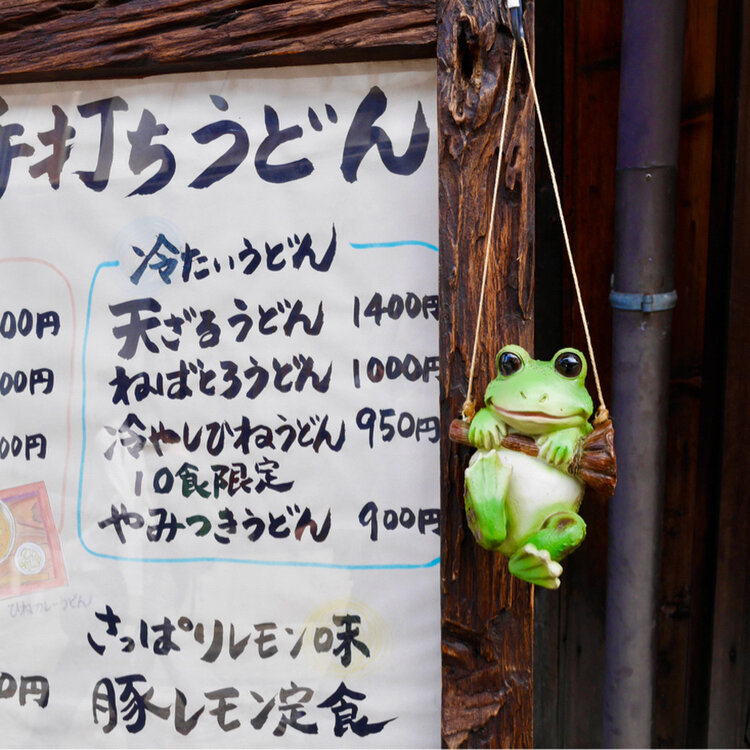 手打ちうどん
冷たいうどん
天ざるうどん 1400円
00円
ねばとろうどん 1000円
00円
冷やしひねうどん 950円
00円
10食限定
やみつきうどん 900円
ひねカレーうどん
さっぱりレモン味
0円
豚レモン定食